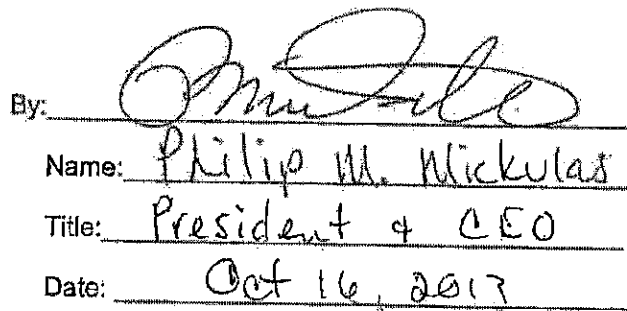 By:
Name: Philip M. Mickulas
Title: President & CEO
Date: Oct 16, 2013